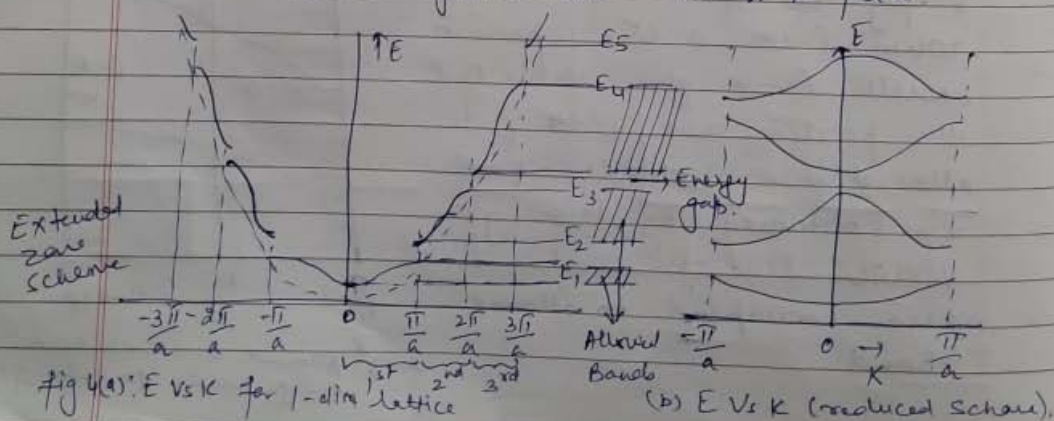 ↑E
E5
E4
E3
Energy
gap.
E2
E1
Extended
zone
scheme
-3π/a -2π/a -π/a 0 π/a 2π/a 3π/a
Allowed
Bands
1st 2nd 3rd
fig 4(a): E Vs K for 1-dim lattice
E
-π/a 0 → K π/a
(b) E Vs K (reduced Scheme).